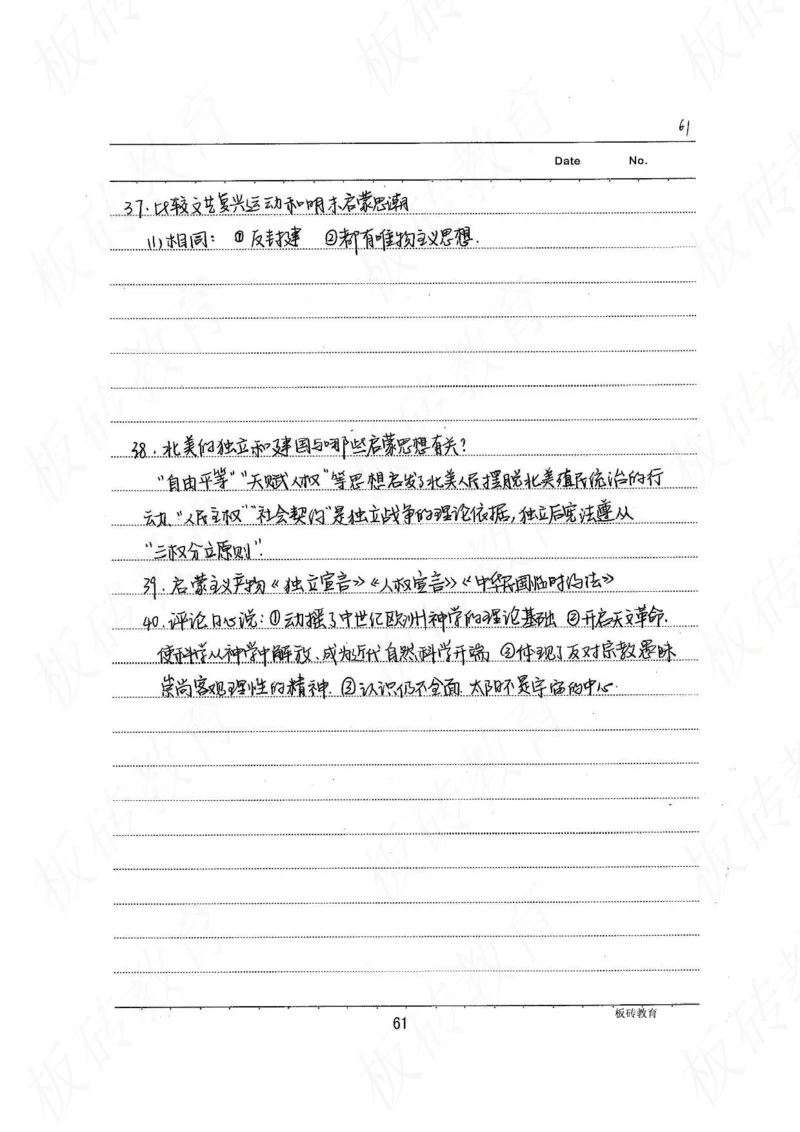 61
Date No.
37.比较文艺复兴运动和明末启蒙思潮
(1)相同: ①反封建 ②都有唯物主义思想.
38.北美的独立和建国与哪些启蒙思想有关?
"自由平等""天赋人权"等思想启发了北美人民摆脱北美殖民统治的行
动,"人民主权""社会契约"是独立战争的理论依据,独立后宪法遵从
"三权分立原则".
39.启蒙主义产物《独立宣言》《人权宣言》《中华民国临时约法》
40.评论日心说:①动摇了中世纪欧洲神学的理论基础 ②开启天文革命.
使科学从神学中解放、成为近代自然科学开端 ②体现了反对宗教愚昧
崇尚客观理性的精神. ③认识仍不全面.太阳不是宇宙的中心.
板砖教育
61